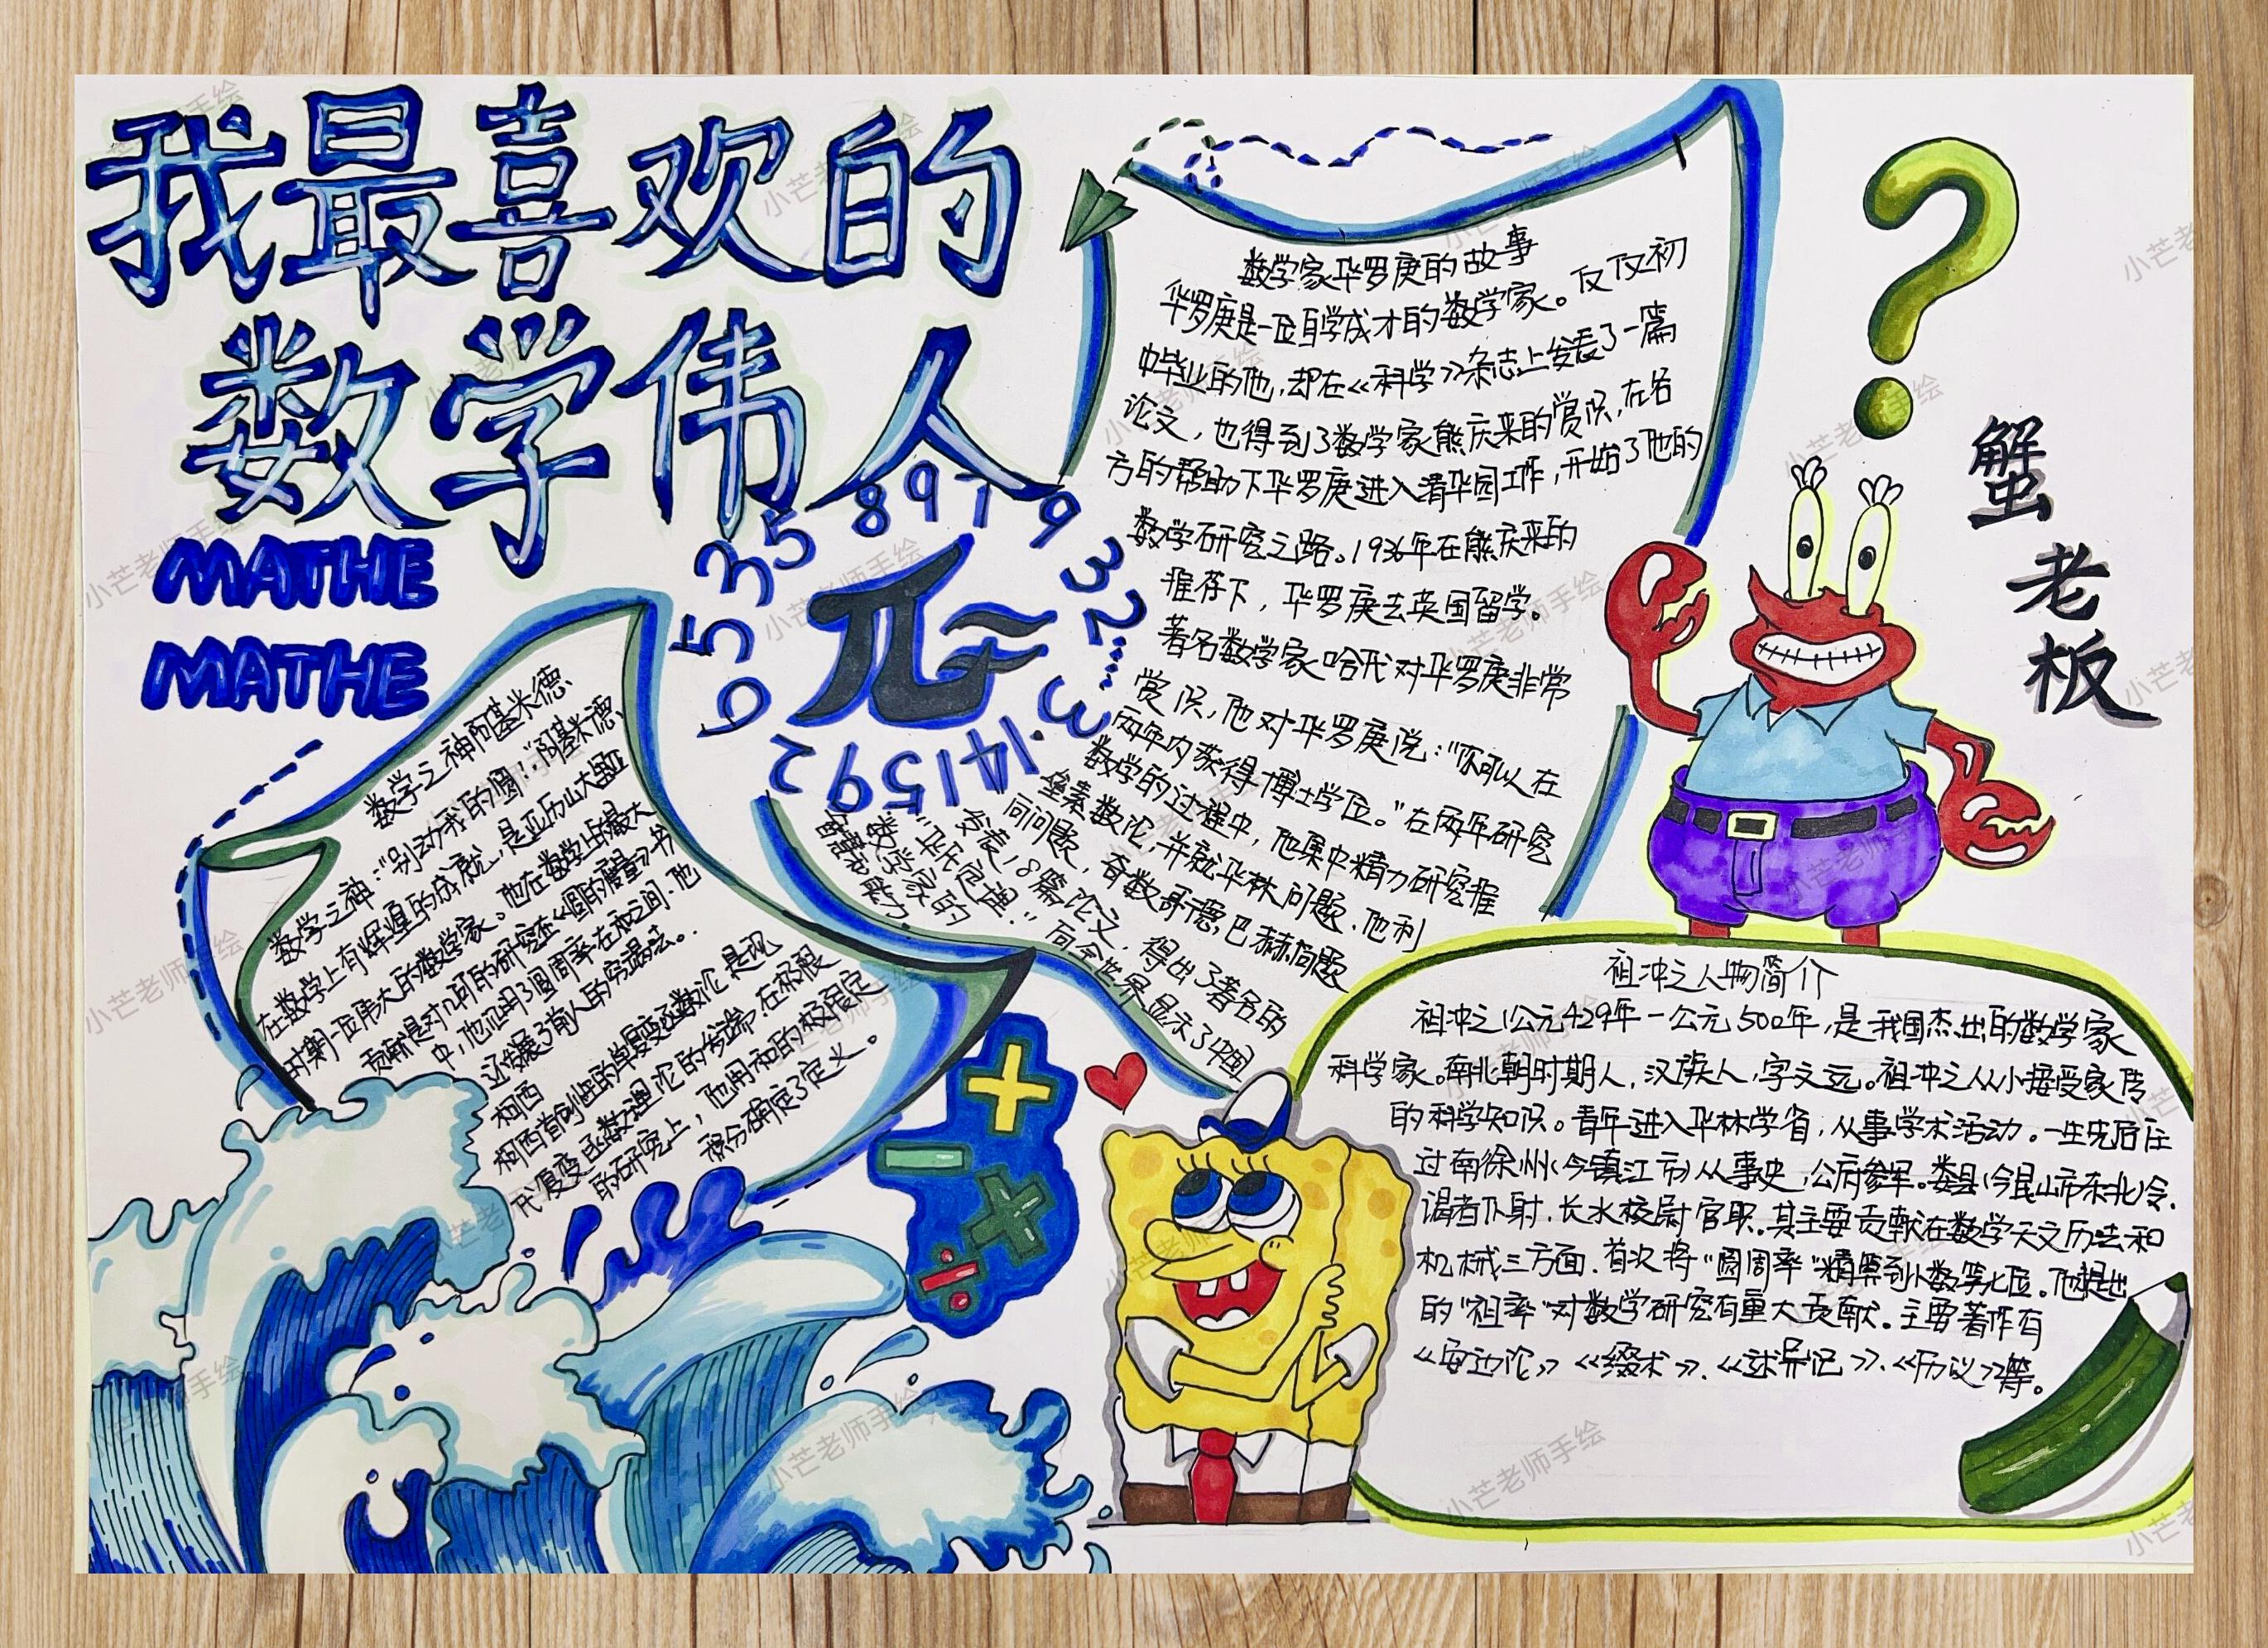 我最喜欢的
数学伟人
MATHE
MATHE
π≈
3.141592
6535
897932……
数学之神阿基米德
数学之神:"别动我的圆!"阿基米德
在数学上有辉煌的成就,是亚历山大
时期 伟大的数学家。他在数学上的最大
贡献是对几何的研究在《圆的度量》一书
中,他证明了圆周率在和之间.他
还发展了前人的穷竭法。
柯西
柯西首创性的单复变函数论是现
代复变函数理论的发端.在积限
的研究上,他用和的极限定
积分确定了定义。
数学家华罗庚的故事
华罗庚是一位自学成才的数学家。仅仅初
中毕业的他,却在《科学》杂志上发表了一篇
论文,也得到了数学家熊庆来的赏识,在各
方的帮助下华罗庚进入清华园工作,开始了他的
数学研究之路。1936年在熊庆来的
推荐下,华罗庚去英国留学。
著名数学家哈代对华罗庚非常
赏识,他对华罗庚说:"你可以在
两年内获得博士学位。"在两年研究
数学的过程中,他集中精力研究堆
垒素数论,并就华林问题.他利
问问题,奇数哥德巴赫问题
发表18篇论文,得出了著名的
"华氏定理."向全世界显示了中国
数学家的
智慧和能力
蟹老板
祖冲之人物简介
祖冲之(公元429年-公元500年,是我国杰出的数学家
科学家。南北朝时期人,汉族人,字文远。祖冲之从小接受家传
的科学知识。青年进入华林学省,从事学术活动。一生先后任
过南徐州(今镇江市)从事史,公府参军。娄县(今昆山市东北)令.
谒者仆射.长水校尉官职.其主要贡献在数学天文历法和
机械三方面.首次将"圆周率"精算到小数第七位。他提出
的"祖率"对数学研究有重大贡献。主要著作有
《安边论》《缀术》.《述异记》.《历议》等。
小芒老师手绘